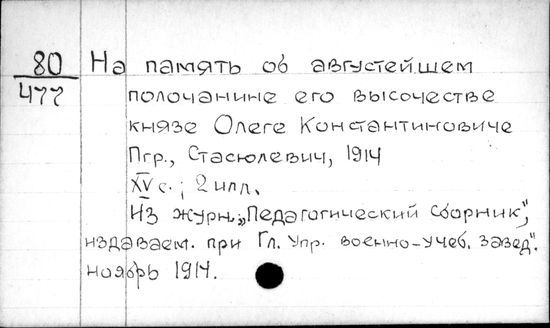 80 На память об августейшем
477 полочанине его высочестве
князе Олеге Константиновиче
Пгр., Стасюлевич, 1914
XV с.; 2 илл.
Из журн. „Педагогический сборник",
издаваем. при Гл. Упр. военно-учеб. завед".
ноябрь 1914.